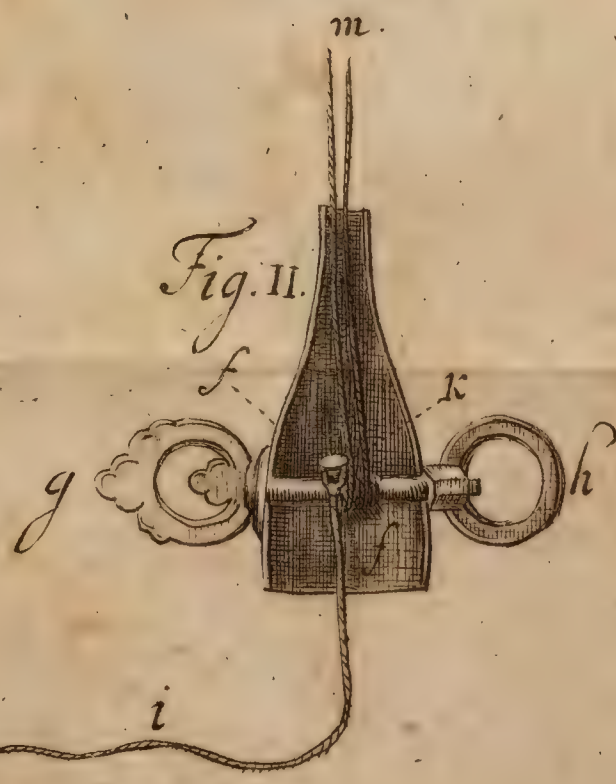 m.
Fig. II.
f
k
g
h
f
i